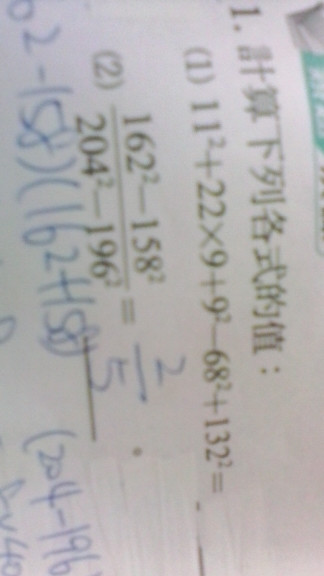 1. 計算下列各式的值：
(1) 11²+22×9+9²-68²+132²=
(2) 162²-158²/204²-196² = 2/5 。
2-158)(162+158)
(204-196